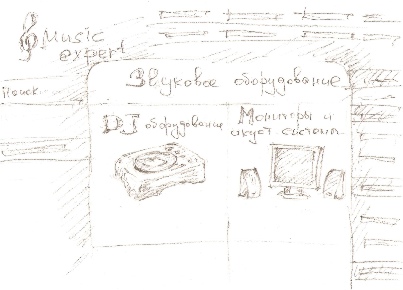 Music
expert
Звуковое оборудование
Поиск
DJ оборудование
Мониторы и
акуст системы